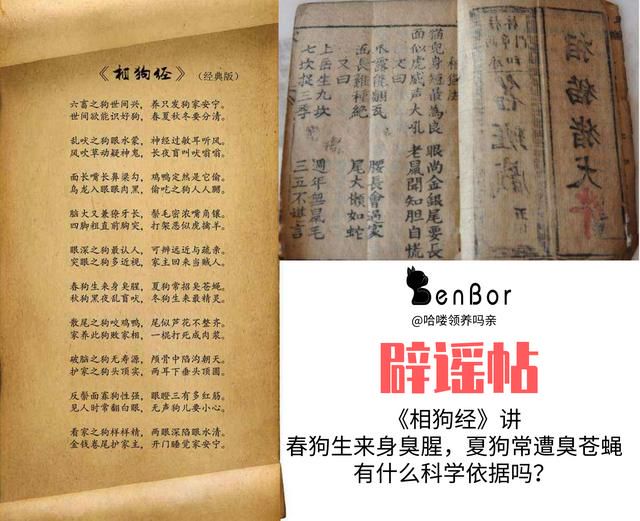 《相狗经》（经典版）
六畜之狗世间兴，养只发狗家安宁。
世间欲能识好狗，春夏秋冬要分清。
乱吠之狗眼水蒙，神经过敏耳听风。
风吹草动疑神鬼，长夜盲叫吠嗡嗡。
面长嘴长鼻梁勾，鸡鸭定然是它偷。
乌龙入眼眼肉黑，偷吃之狗人人踢。
脑大又兼獠牙长，鬃毛密浓嘴角镶。
四脚粗直前胸突，打架恶似虎擒羊。
眼深之狗最认人，可辨远近与疏亲。
突眼之狗多近视，家主回来当贼人。
春狗生来身臭腥，夏狗常招臭苍蝇。
秋狗黑夜乱盲吠，冬狗生来最精灵。
散尾之狗咬鸡鸭，尾似芦花不整齐。
家养此狗败家相，一棍打死成肉浆。
破脑之狗无寿源，颅骨中陷沟朝天。
护家之狗头顶实，两耳下垂头顶圆。
反鬃面寡狗性强，眼瞪三有多红筋。
见人时常翻白眼，无声狗儿要小心。
看家之狗样样精，两眼深陷眼水清。
金钱卷尾护家主，开门睡觉家安宁。
相猫猪犬
相猫法
猫兒身短最為良 眼尚金銀尾要長
面似虎威声大孔 老鼠聞知胆自慌
又曰
露能翻瓦 腰長會過家
面長雞種絶 尾大懶如蛇
又曰
上岳生九坎 週年無鼠毛
七坎捉三季 三五不堪言
BenBor
@哈喽领养吗亲
辟谣帖
《相狗经》讲
春狗生来身臭腥，夏狗常遭臭苍蝇
有什么科学依据吗？